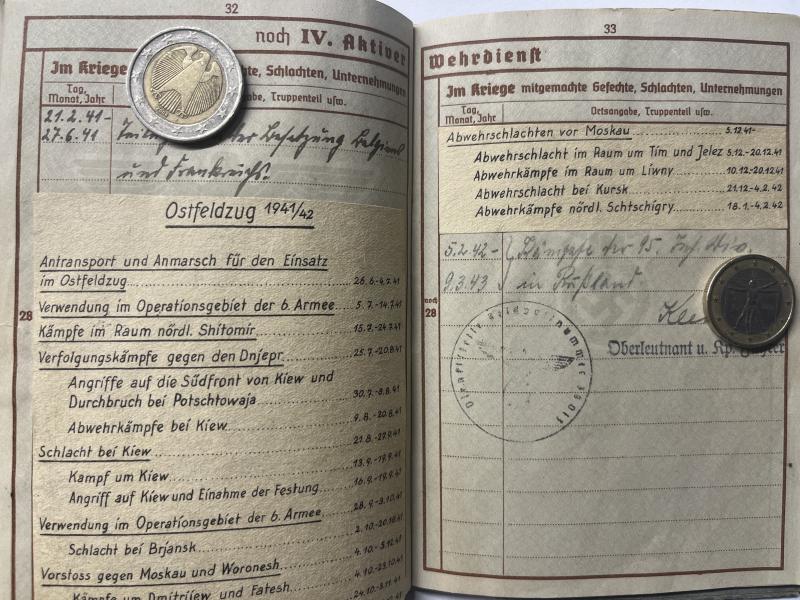 32
noch IV. Aktiver
Im Kriege te, Schlachten, Unternehmungen
Tag, Monat, Jahr
abe, Truppenteil usw.
21.2.41-
27.6.41
der Besetzung Belgiens
und Frankreichs.
Ostfeldzug 1941/42
Antransport und Anmarsch für den Einsatz
im Ostfeldzug 26.6.-4.7.41
Verwendung im Operationsgebiet der 6. Armee 5.7.-14.7.41
Kämpfe im Raum nördl. Shitomir 15.7.-24.7.41
Verfolgungskämpfe gegen den Dnjepr 25.7.-20.8.41
Angriffe auf die Südfront von Kiew und
Durchbruch bei Potschtowaja 30.7.-8.8.41
Abwehrkämpfe bei Kiew 9.8.-20.8.41
Schlacht bei Kiew 21.8.-27.9.41
Kampf um Kiew 13.9.-19.9.41
Angriff auf Kiew und Einahme der Festung 16.9.-19.9.41
Verwendung im Operationsgebiet der 6. Armee 28.9.-3.10.41
Schlacht bei Brjansk 2.10.-20.10.41
Vorstoss gegen Moskau und Woronesh 4.10.-5.12.41
Kämpfe um Dmitrijew und Fatesh 4.10.-23.10.41
24.10.-3.11.41
28
33
Wehrdienst
Im Kriege mitgemachte Gefechte, Schlachten, Unternehmungen
Tag, Monat, Jahr
Ortsangabe, Truppenteil usw.
Abwehrschlachten vor Moskau 5.12.41-
Abwehrschlacht im Raum um Tim und Jelez 5.12.-20.12.41
Abwehrkämpfe im Raum um Liwny 10.12.-20.12.41
Abwehrschlacht bei Kursk 21.12.-4.2.42
Abwehrkämpfe nördl. Schtschigry 18.1.-4.2.42
5.2.42- Kämpfe der 95. Inf. Div.
9.3.43 in Rußland.
noch
28
Oberleutnant u. Kp.